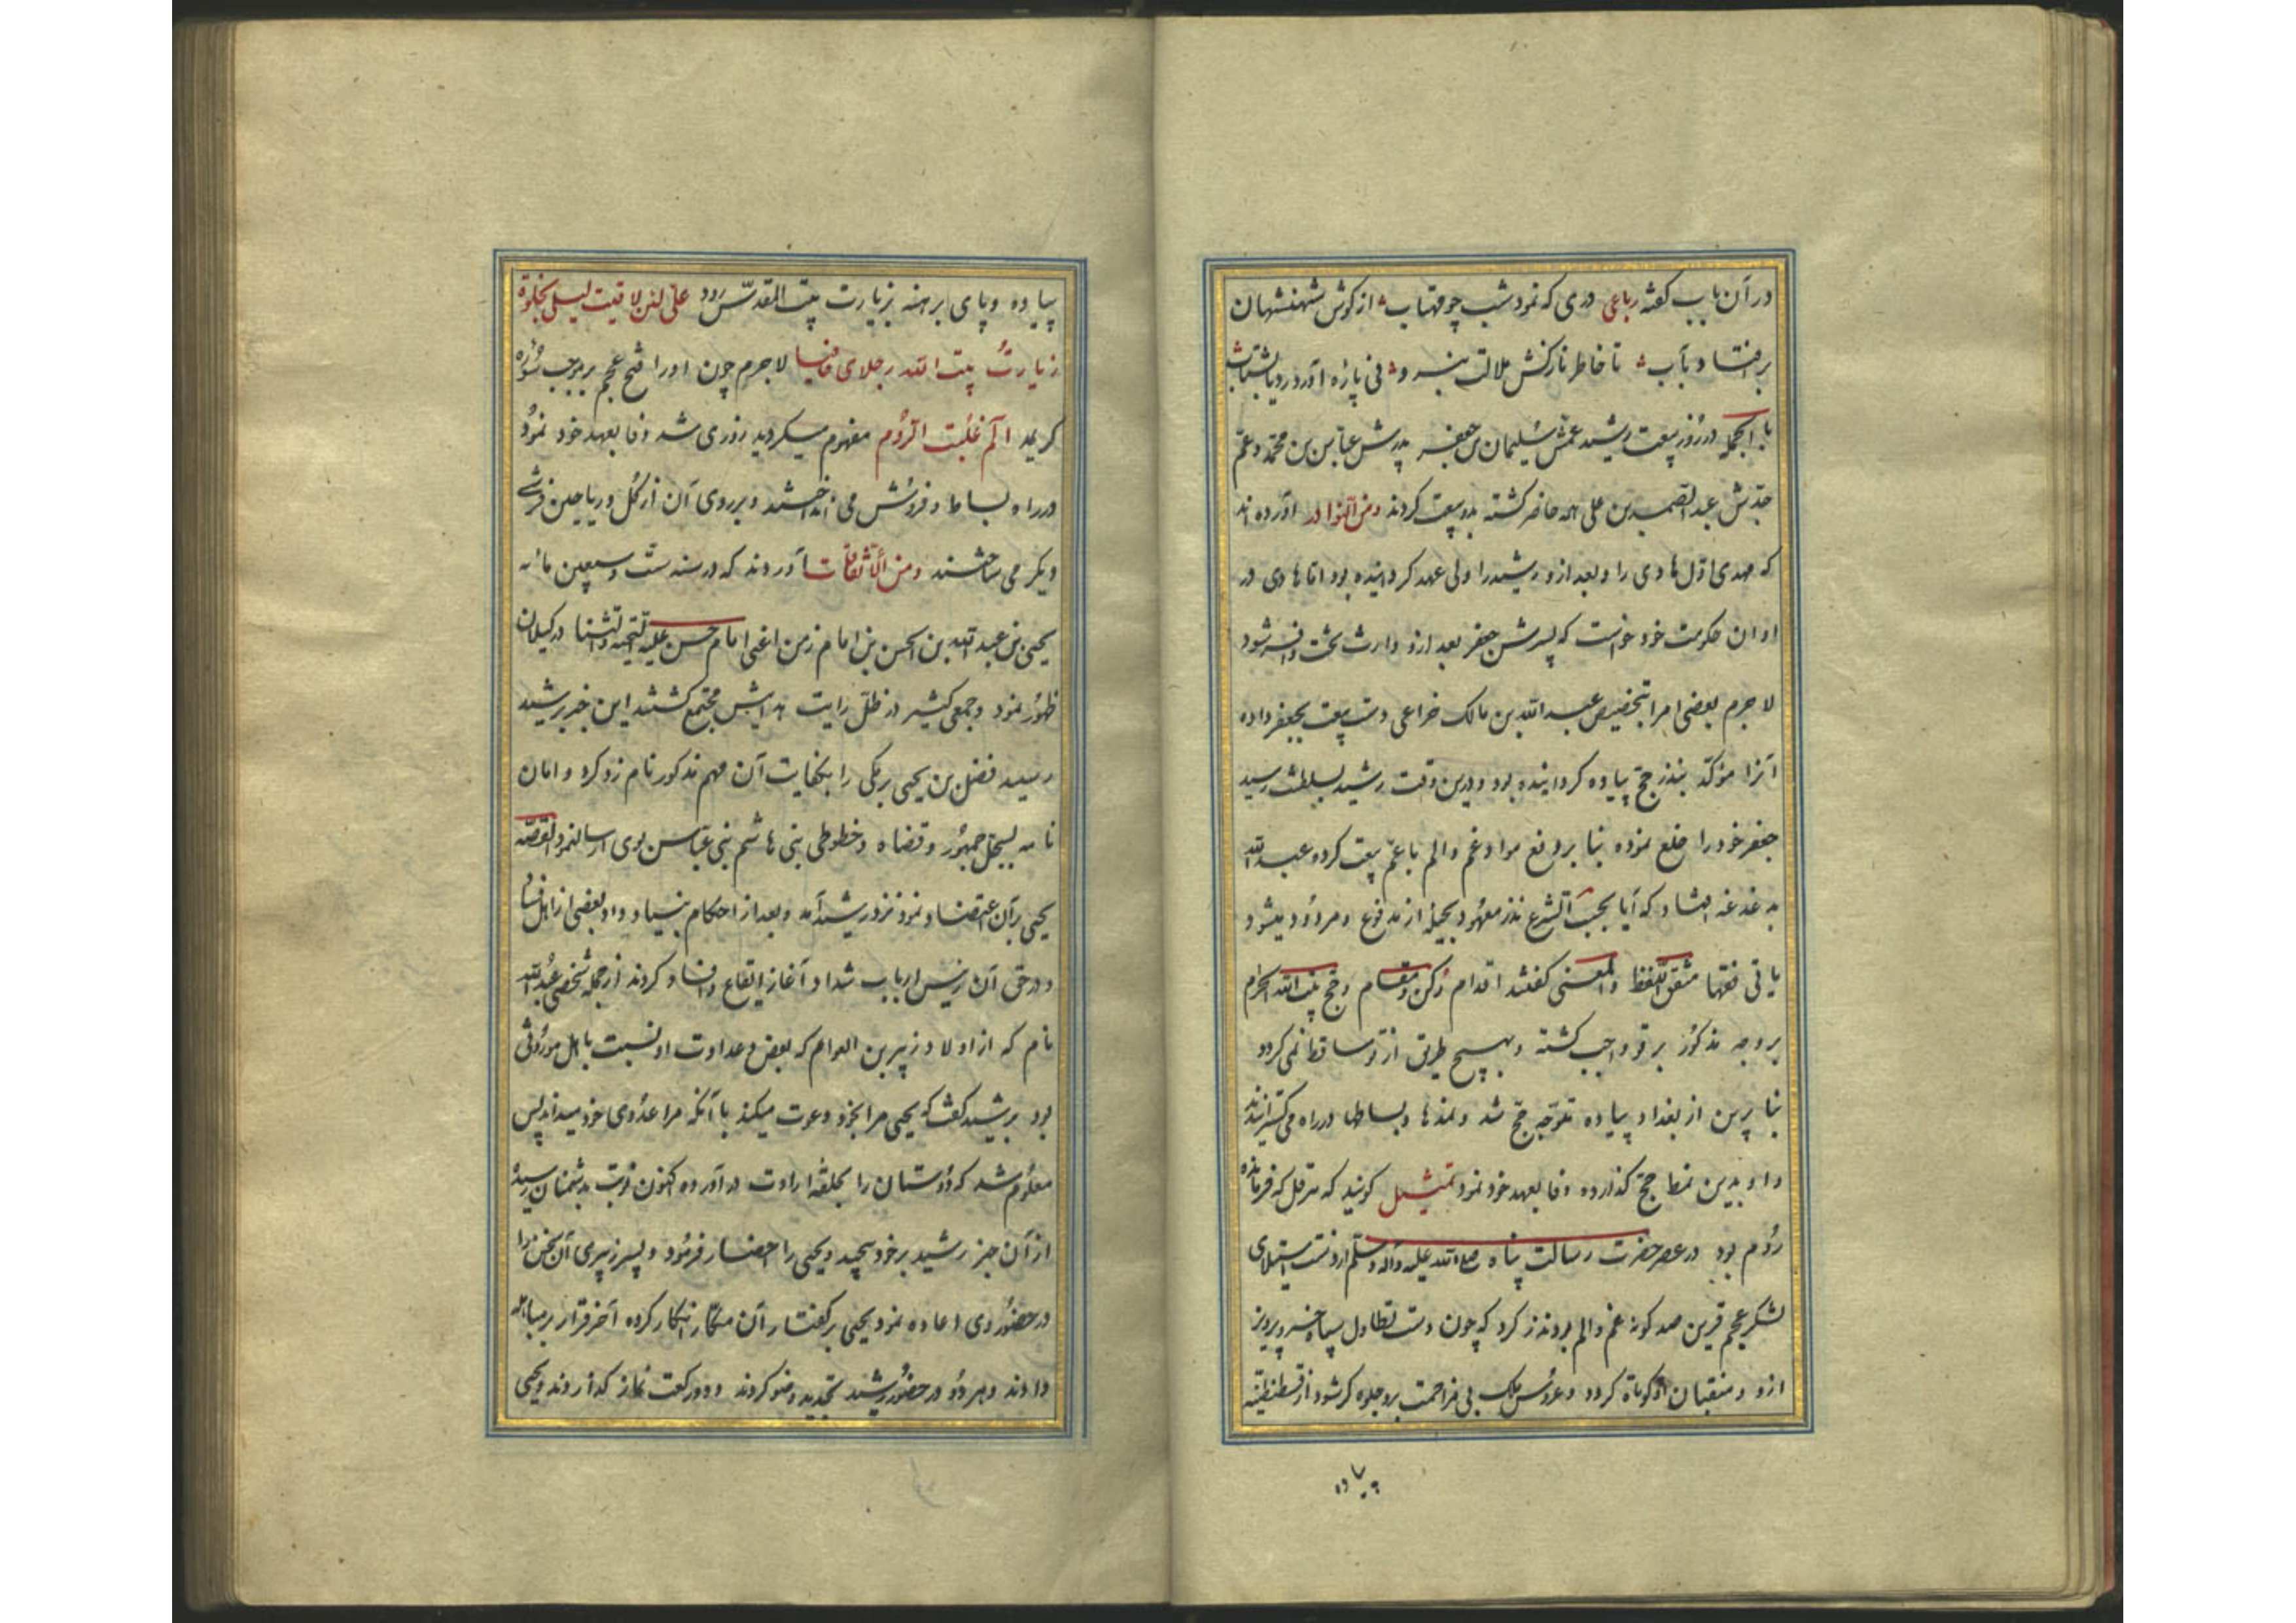 در آن باب گفته رباعی دری که نمود شب چو مهتاب از گوش شهنشهان
برافتاد بآب تا خاطر نازکش ملالت نبرد فی پاره آورد ردیا بشتاب
بالجمله در روز بیعت رشید عمش سلیمان بن جعفر پدرش عباس بن محمد و عم
جدش عبدالصمد بن علی همه حاضر کشته بدو بیعت کردند ومن النوادر آورده اند
که مهدی اول هادی را و بعد ازو رشید را ولی عهد کردانیده بود اما هادی در
اوان حکومت خود خواست که پسرش جعفر بعد ازو وارث تخت و افسر شود
لاجرم بعضی امرا بتخصیص عبد الله بن مالک خزاعی دست بیعت بجعفر داده
آنرا مؤکد بنذر حج پیاده کردانیده بود و درین وقت رشید بسلطنت رسید
جعفر خود را خلع نموده بنا بر دفع مواد غم و الم با عم بیعت کرد و عبد الله
بدغدغه افتاد که آیا بحسب الشرع نذر معهود بحیله از مدفوع و مردود میشود
یا نی فقها متفق اللفظ والمعنی کفتند اقدام رکن و مقام و حج بیت الله الحرام
بر وجه مذکور بر تو واجب کشته و بهیچ طریق از تو ساقط نمی کردد
بنا برین از بغداد پیاده متوجه حج شد و نمدها و بساطها در راه می کسترانیدند
و او بدین نمط حج گذارده وفا بعهد خود نمود تمثیل کویند که هرقل که فرمانده
روم بود در عصر حضرت رسالت پناه صلی الله علیه وآله وسلم از دست استیلای
لشکر عجم قرین صد کونه غم و الم بود نذر کرد که چون دست تطاول سپاه خسرو پرویز
ازو و متعبان او کوتاه کردد و عروس ملک بی مزاحمت برو جلوه کر شود از قسطنطنیه
پیاده
پیاده و پای برهنه بزیارت بیت المقدس رود علی لئن لاقیت لیلی بخلوة
زیارت بیت الله رجلای حافیا لاجرم چون او را فتح عجم بر موجب سوره
کریمه الم غلبت الروم مفهوم میکردید روزی شد وفا بعهد خود نمود
در راه بساط و فروش می انداختند و بر روی آن از کل و ریاحین فرشی
دیکر می ساختند ومن الاتفاقات آوردند که در سنه ست و سبعین مائه
یحیی بن عبد الله بن الحسن بن امام زمن اعنی امام حسن علیه التحیه والثنا در کیلان
ظهور نمود و جمعی کثیر در ظل رایت هدایتش مجتمع کشتند این خبر برشید
رسید فضل بن یحیی برمکی را بکفایت آن مهم مذکور نام زد کرد و امان
نامه بسجل جمهور و قضاه و خطوطی بنی هاشم بنی عباس بوی ارسال نمود القصه
یحیی بر آن اعتضاد نمود نزد رشید آمد و بعد از احکام بنیاد وداد بعضی از اهل فساد
در حق آن رئیس ارباب شداد آغاز ایقاع و افساد کردند از جمله شخصی عبد الله
نام که از اولاد زبیر بن العوام که بغض و عداوت او نسبت باهل موروثی
بود برشید کفت که یحیی مرا بخود دعوت میکند با آنکه مرا عدوی خود میداند پس
معلوم شد که دوستان را بحلقه ارادت در آورده اکنون نوبت بدشمنان رسیده
از آن خبر رشید بر خود پیچید و یحیی را احضار فرمود و پسر زبیری آن سخن را
در حضور وی اعاده نمود یحیی بر کفتار آن مکار انکار کرده آخر قرار بر مباهله
دادند و هر دو در حضور رشید تجدید وضو کردند و دو رکعت نماز کذاردند و یحیی